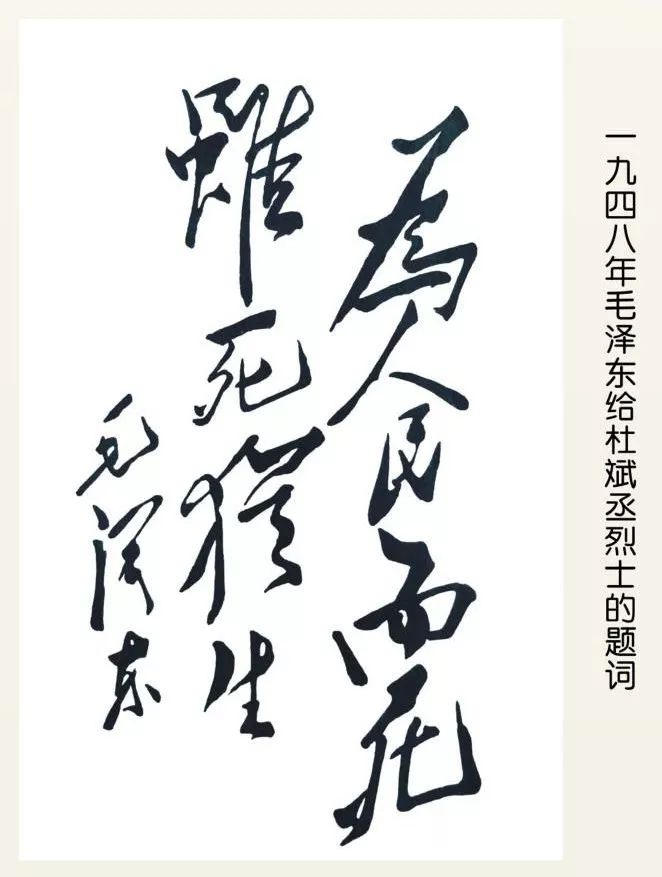 一九四八年毛泽东给杜斌丞烈士的题词
為人民而死
雖死猶生
毛澤东